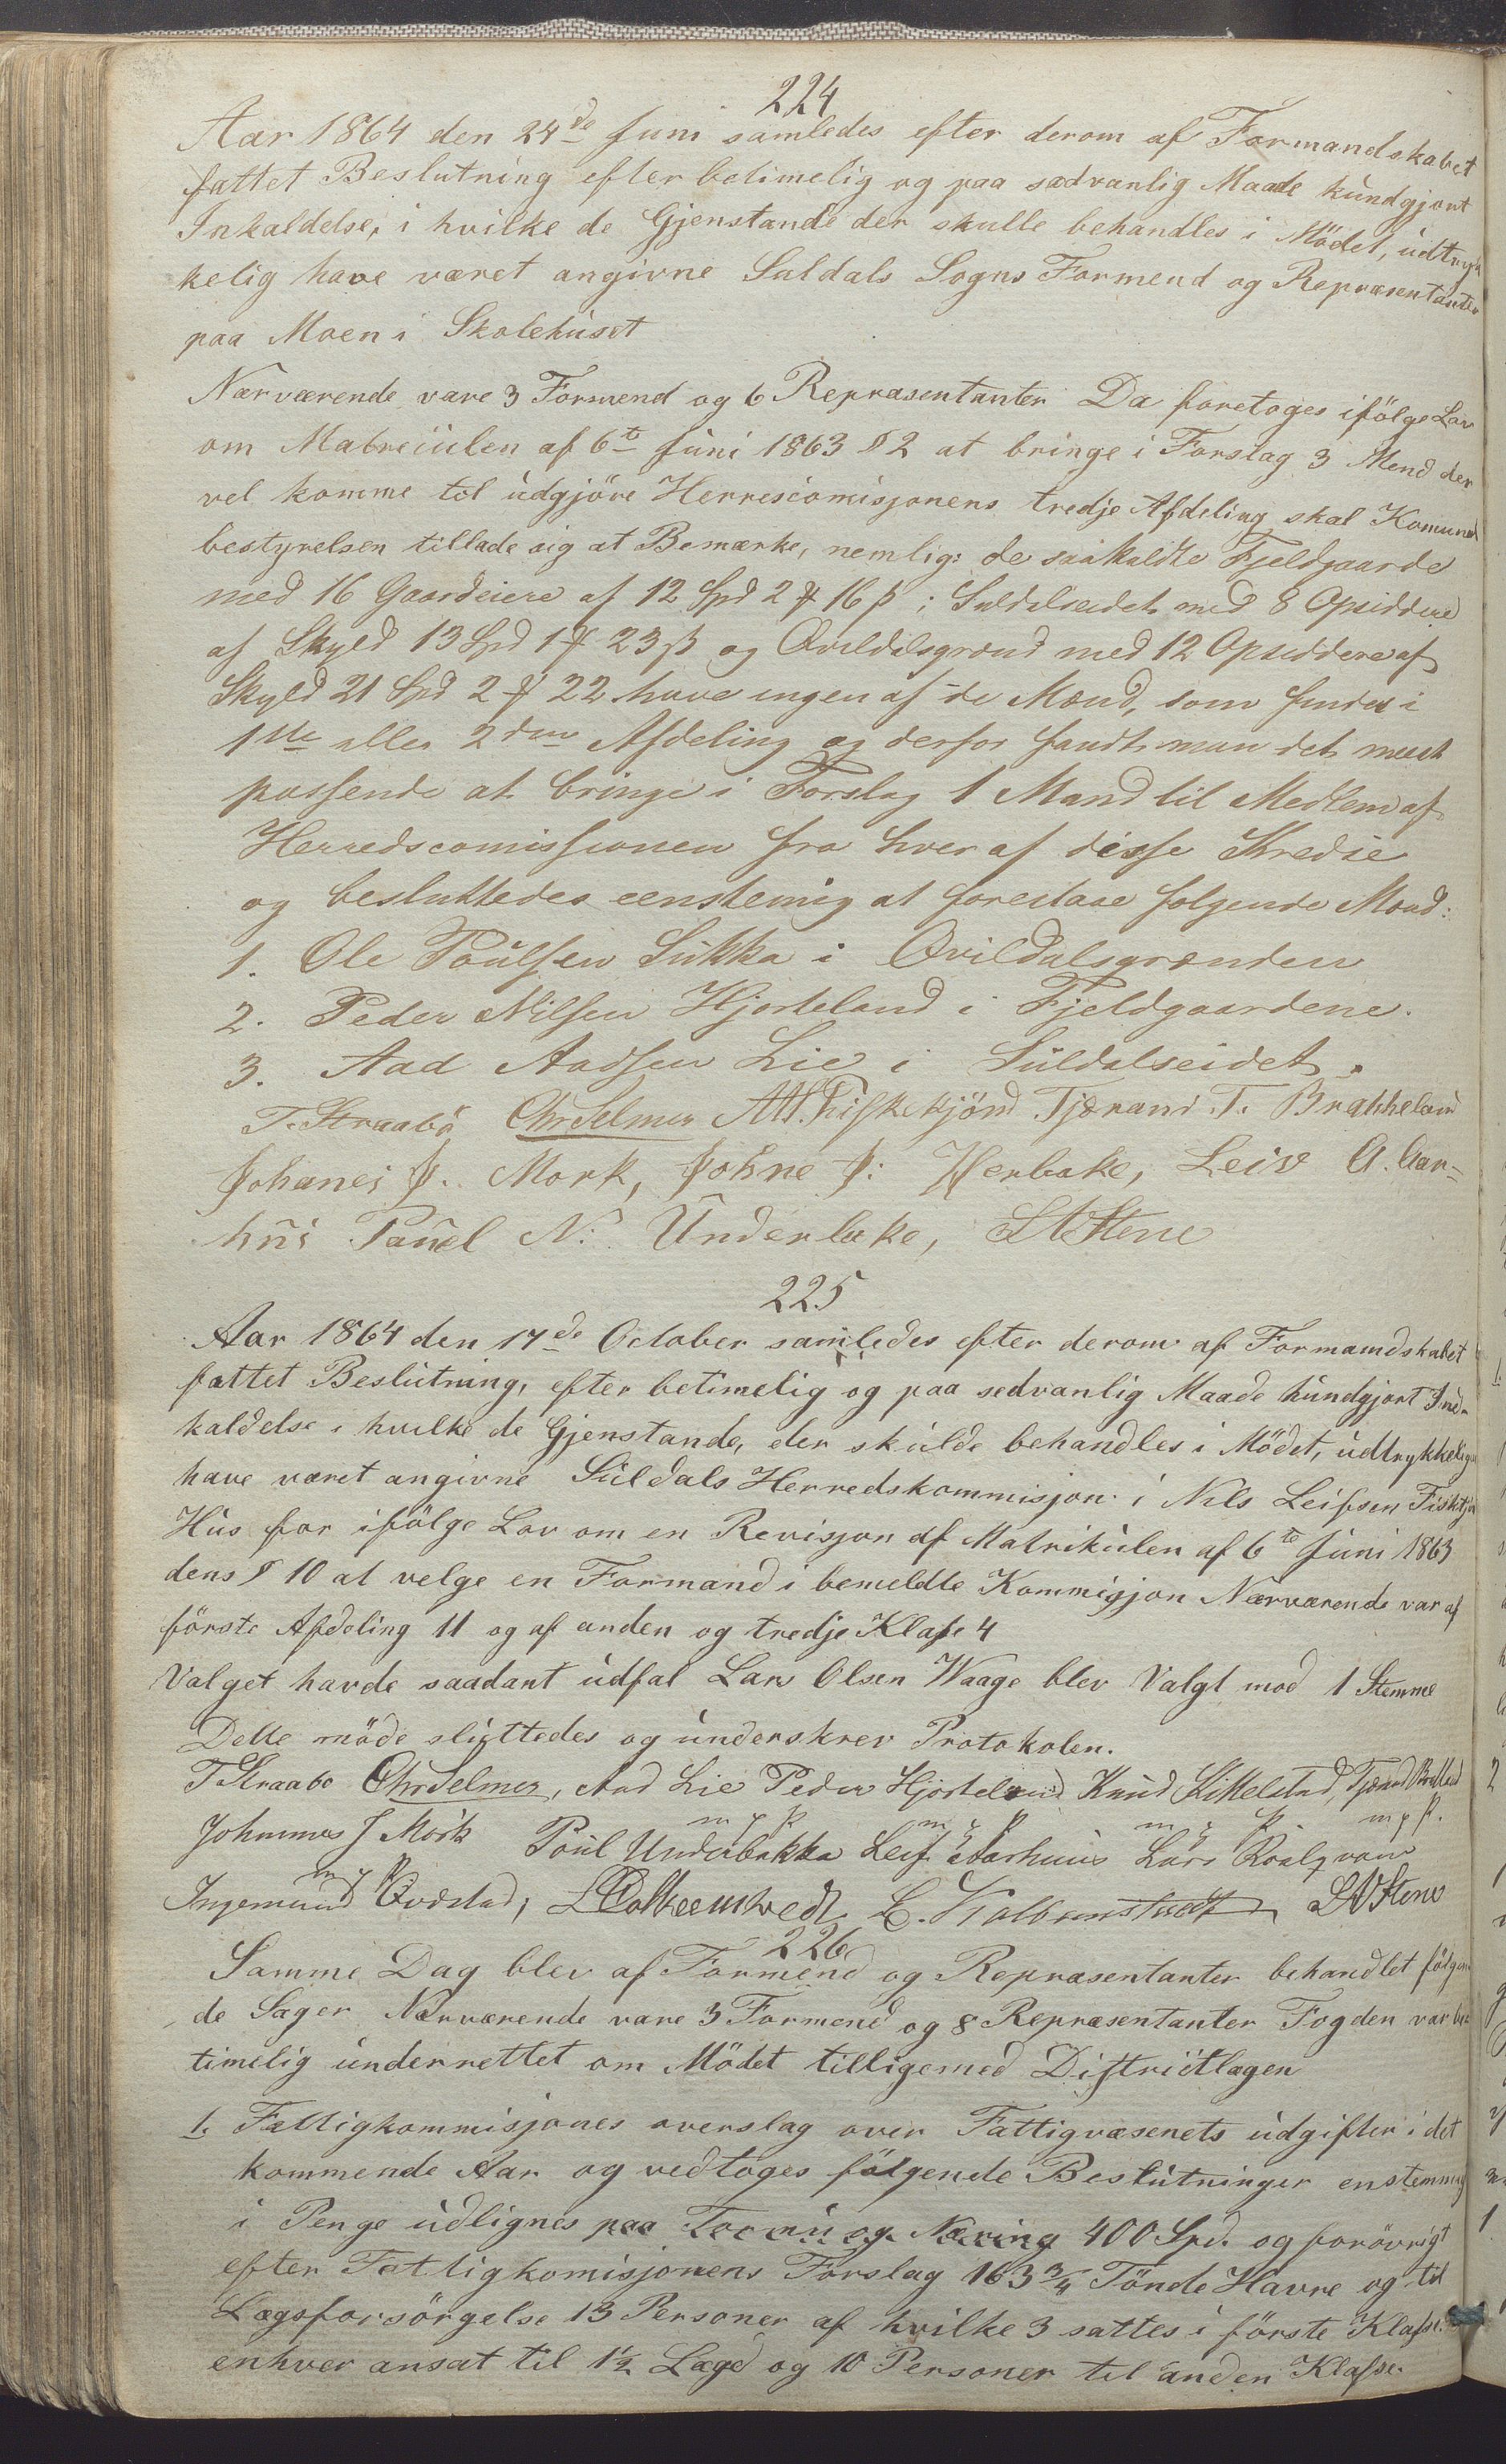 224
Aar 1864 den 24de Juni samledes efter derom af Formandskabet
fattet Beslutning efter betimelig og paa sædvanlig Maade kundgjort
Inkaldelse, i hvilke de Gjenstande der skulle behandles i Mödet, udtryk
kelig have været angivne Suldals Sogns Formend og Repræsentanter
paa Moen i Skolehuset
Nærværende vare 3 Formend og 6 Repræsentanter Da foretoges ifölge Lov
om Matreculen af 6te Juni 1863 § 2 at bringe i Forslag 3 Mend der
vel komme til udgjöre Herrescomisjonens tredje Afdeling skal Komune
bestyrelsen tillade sig at Bemærke, nemlig: de saakaldte Fjeldgaarde
med 16 Gaardeiere af 12 Spd 2 # 16 ß; Suldalseidet med 8 Opsiddere
af Skyld 13 Spd 1 # 23 ß og Qvildalsgrænd med 12 Opsiddere af
Skyld 21 Spd 2 # 22 have ingen af de Mænd, som findes i
1ste eller 2den Afdeling og derfor fandt man det mest
passende at bringe i Forslag 1 Mand til Medlem af
Herredscomissionen fra hver af disse Kredse
og besluttedes eenstemig at forestaae folgende Mænd:
1. Ole Poulsen Sukka i Qvildalsgrænden
2. Peder Nilsen Hjorteland i Fjeldgaardene.
3. Aad Aadsen Lie i Suldalseidet.
T. Straabö Chr Selmer Fisketjönd Tjærand T. Brakkeland
Johanes J. Mork, Johne J: Herbake, Leiv A. Aar-
hus Pauel N. Underbake, Stene
225
Aar 1864 den 17de October samledes efter derom af Formandskabet
fattet Beslutning, efter betimelig og paa sedvanlig Maade kundgjort Ind-
kaldelse i hvilke de Gjenstande, der skulde behandles i Mödet, udtrykkelige
have været angivne Suldals Herredskommisjon i Nils Leifsen Fisktjø
Hus for ifölge Lov om en Revisjon af Matrikulen af 6te Juni 1863
dens § 10 at velge en Formand i bemeldte Kommisjon Nærværende var af
förste Afdeling 11 og af anden og tredje Klase 4
Valget havde saadant udfal Lars Olsen Waage blev Valgt mod 1 Stemme
Dette möde sluttedes og underskrev Protokolen.
T Straabo Chr Selmer, Aad Lie Peder Hjorteland Knud Kittelstad, Tjærand Brakland
m p p m p p m p p m p p.
Johannes J Mork Poul Underbakka Leif Aarhuus Lars Roalqvam
m p p
Ingemund Qvæstad, L. Kolbeinstvedt Stene
226
Samme Dag blev af Formend og Repræsentanter behandlet fölgen
de Sager Nærværende vare 3 Formend og 8 Repræsentanter Fogden var be
timelig underrettet om Mödet tilligemed Distriktlægen
1. Fattigkommisjones overslag over Fattigvæsenets udgifter i det
kommende Aar og vedtoges fölgende Beslutninger enstemmig
i Penge udlignes paa Formu og Næring 400 Spd. og forövrigt
efter Fattigkomisjonens Forslag 163 3/4 Tönde Havre og til
Lægsforsörgelse 13 Personer af hvilke 3 sattes i förste Klasse.
enhver ansat til 1½ Lægd og 10 Personer til anden Klasse.